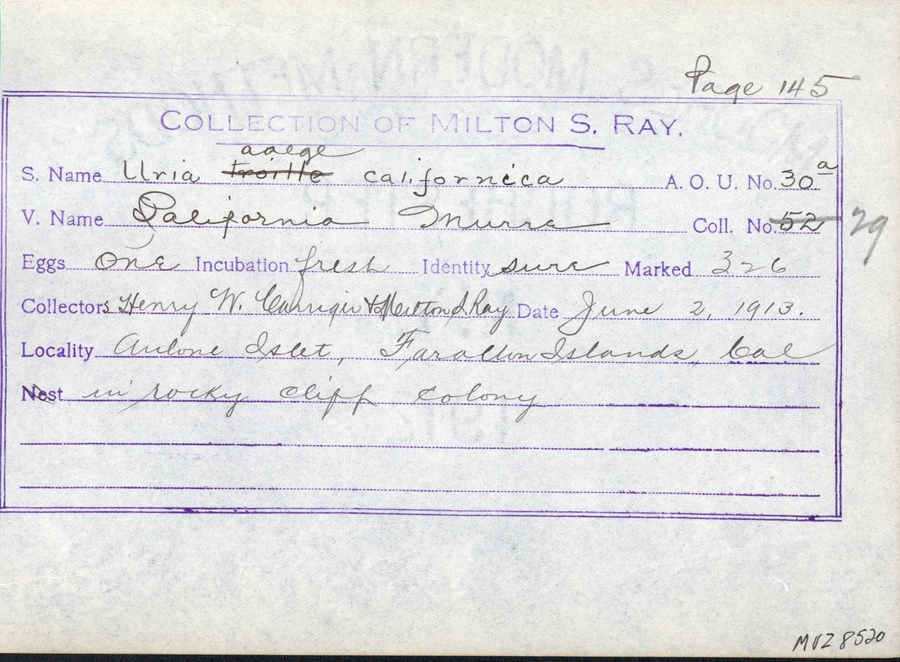 Page 145
COLLECTION OF MILTON S. RAY.
aalge
S. Name Uria troille californica A. O. U. No. 30a
V. Name California Murre Coll. No. 52 29
Eggs One Incubation fresh Identity sure Marked 326
Collectors Henry W. Carriger & Milton S Ray Date June 2, 1913.
Locality Islet, Farallon Islands, Cal
Nest in rocky cliff colony
MVZ 8520